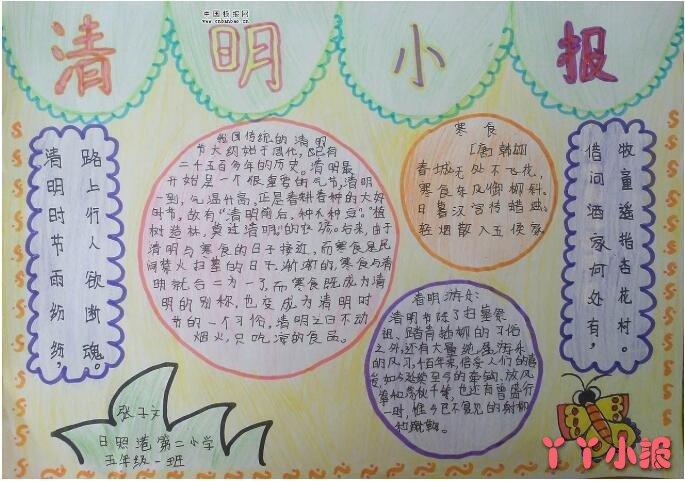 中国板报网
www.cnbanbao.cn
清明小报
清明时节雨纷纷，
路上行人欲断魂。
我国传统的清明
节大约始于周代，已有
二千五百多年的历史。清明最
开始是一个很重要的节气，清明
一到，气温升高，正是春耕春种的大好
时节，故有“清明前后，种瓜种豆”“植
树造林，莫过清明”的农谚。后来，由于
清明与寒食的日子接近，而寒食是民
间禁火扫墓的日子，渐渐的，寒食与清
明就合二为一了，而寒食既成为清
明的别称，也变成为清明时
节的一个习俗，清明之日不动
烟火，只吃凉的食品。
寒食
[唐]韩翃
春城无处不飞花，
寒食东风御柳斜。
日暮汉宫传蜡烛，
轻烟散入五侯家
清明游玩：
清明节除了扫墓祭
祖、踏青插柳的习俗
之外，还有大量
的风习，千百年来，
一时，
借问酒家何处有，
牧童遥指杏花村。
张子文
日照港第二小学
五年级一班
丫丫小报